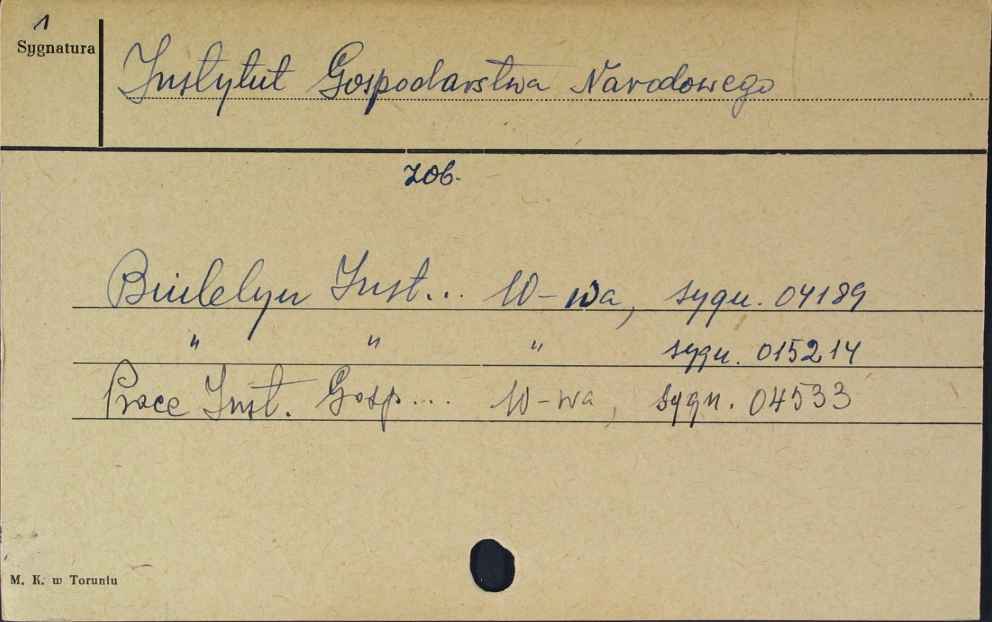 1
Sygnatura
Instytut Gospodarstwa Narodowego
zob.
Biuletyn Inst... W-wa, sygn. 04189
" " " sygn. 015214
Prace Inst. Gosp... W-wa, sygn. 04533
M. K. w Toruniu